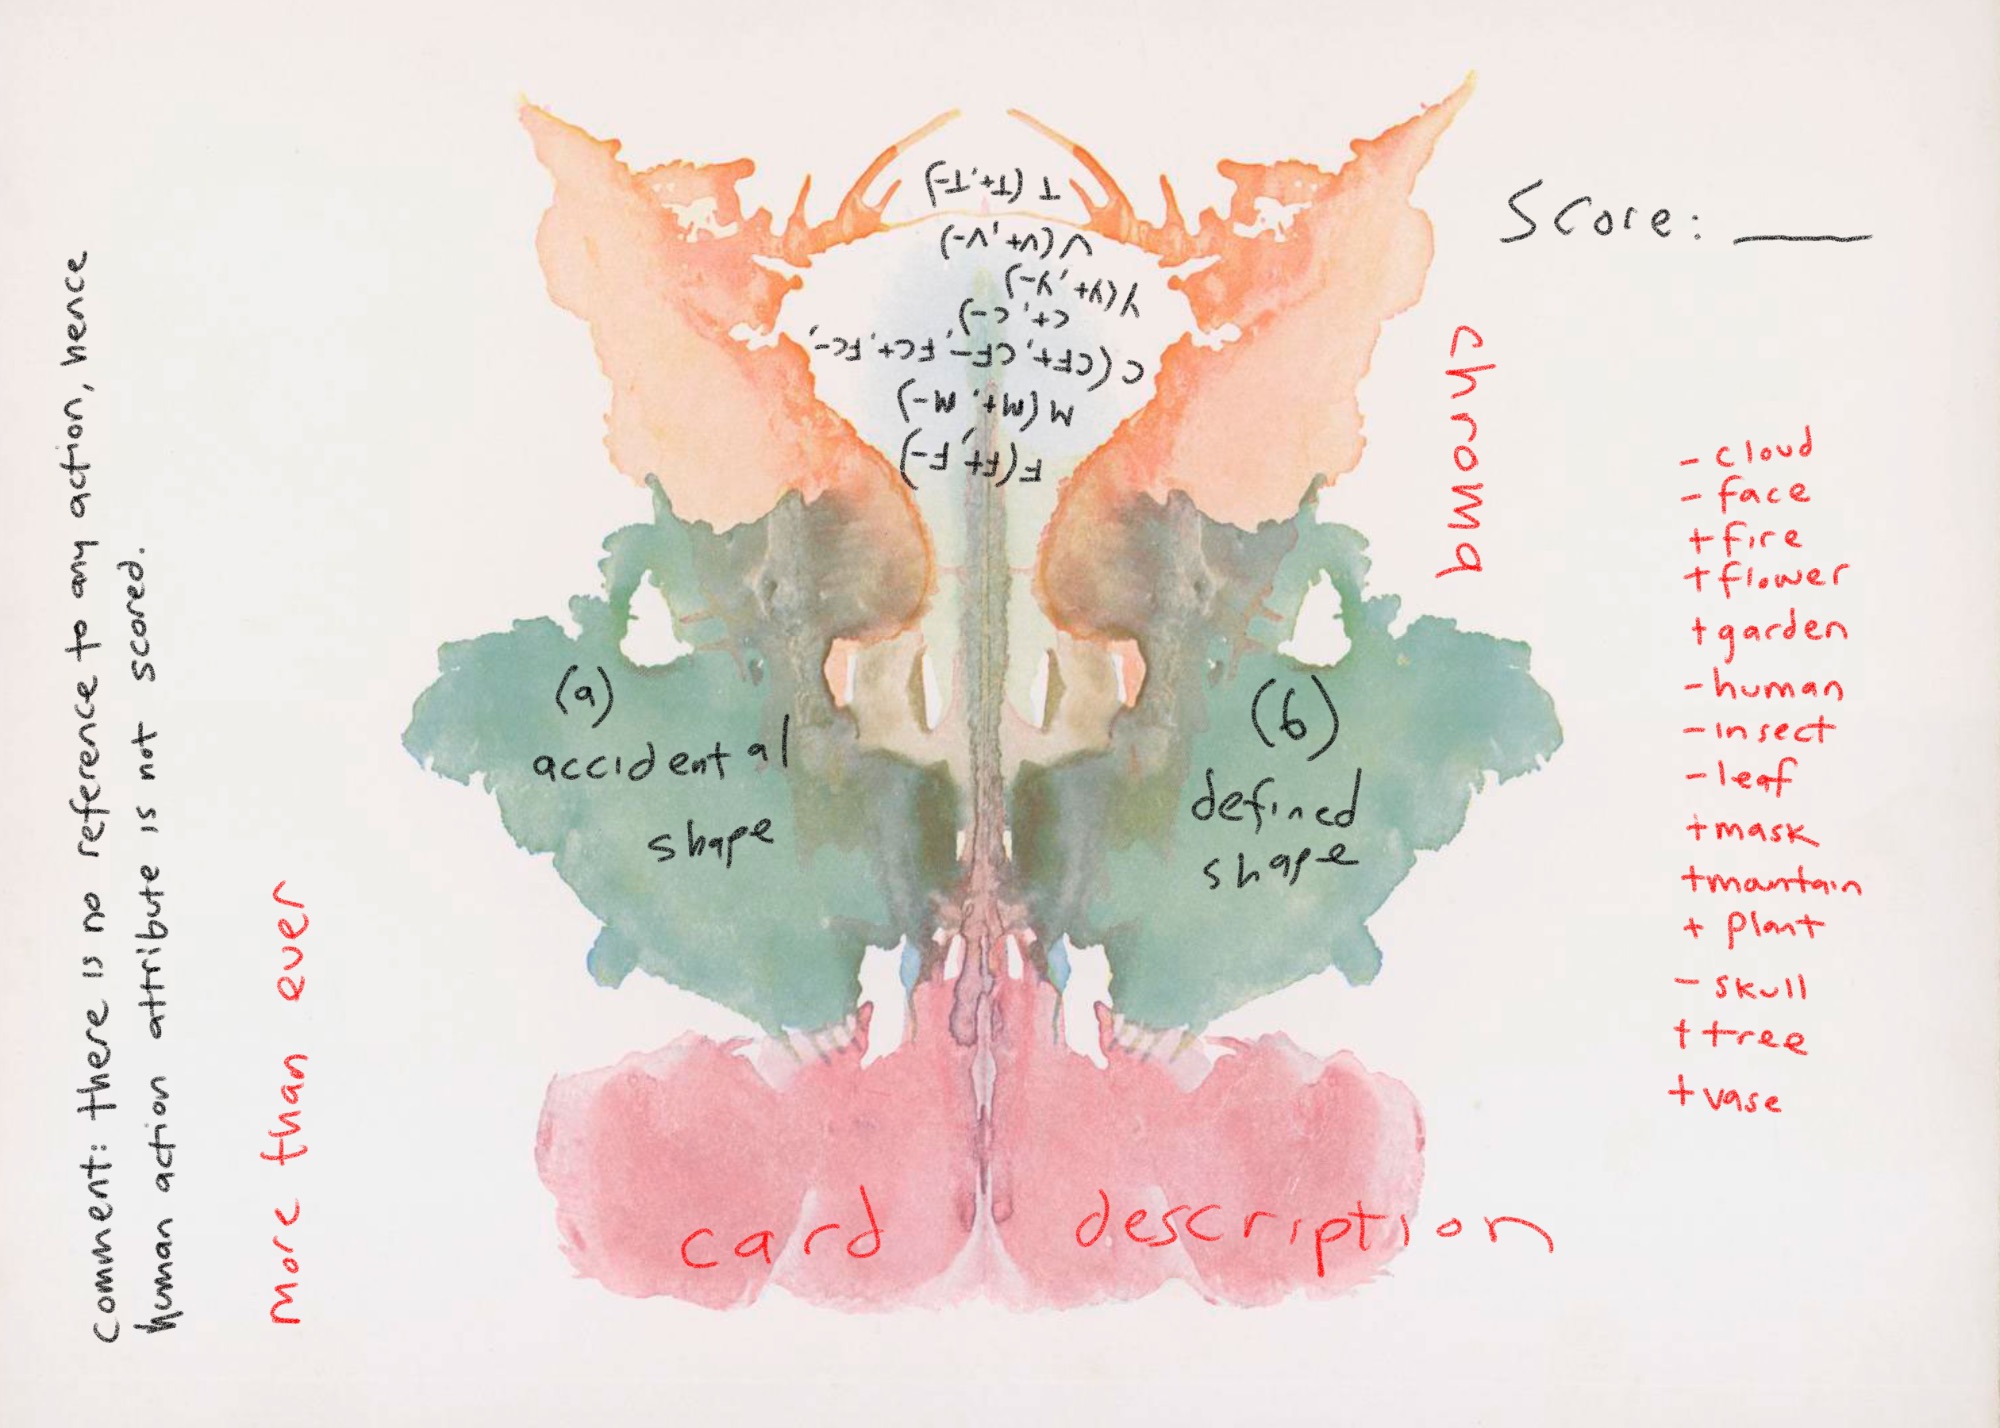 comment: there is no reference to any action, hence
human action attribute is not scored.
more than ever
T (T+, T-)
V (V+, V-)
Y (Y+, Y-)
C+, C-)
C (CF+, CF-, FC+, FC-,
M (M+, M-)
F (F+, F-)
Score: ____
chroma
(a)
accidental
shape
(b)
defined
shape
- cloud
- face
+ fire
+ flower
+ garden
- human
- insect
- leaf
+ mask
+ mountain
+ plant
- skull
+ tree
+ vase
card description